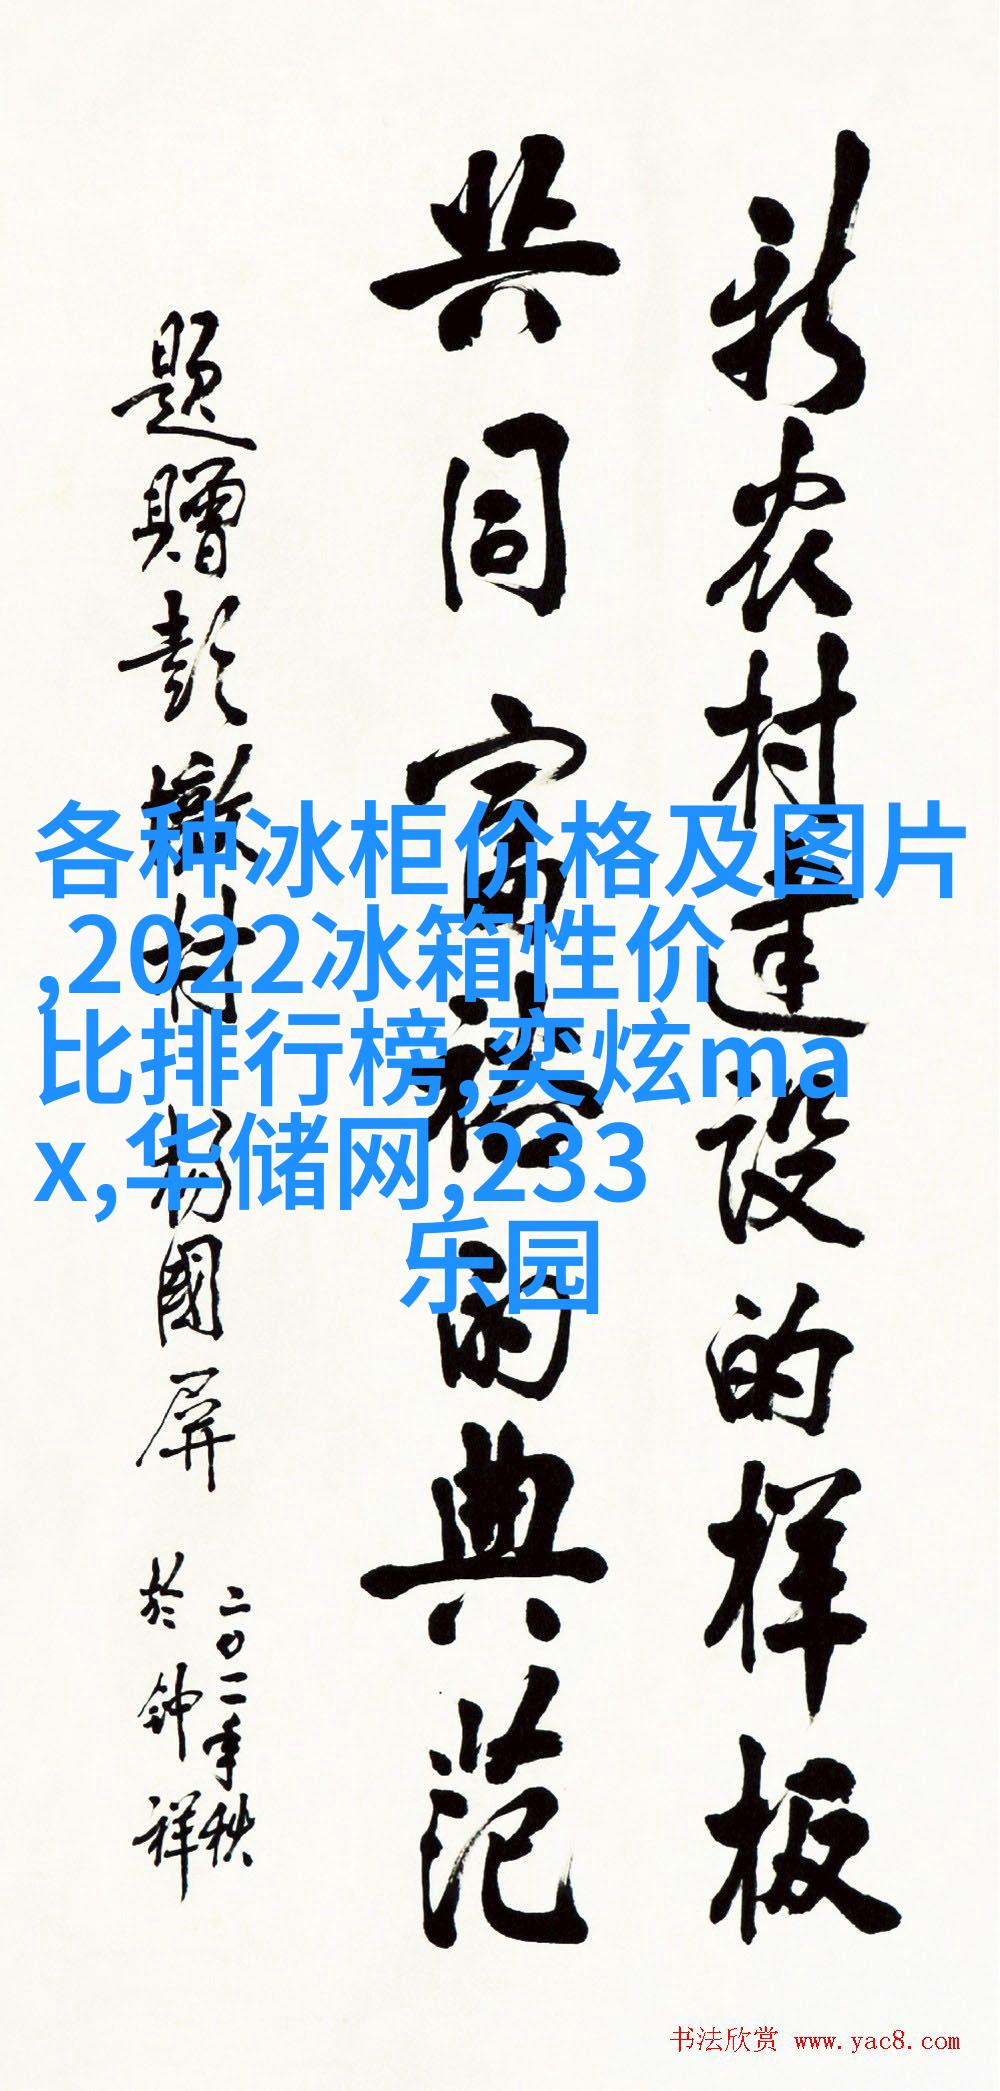 新农村建设的样板
共同富裕的典范
题赠彭墩村 杨国屏
二〇一一年秋
於钟祥
各种冰柜价格及图片
,2022冰箱性价
比排行榜,奕炫ma
x,华储网,233
乐园
书法欣赏 www.yac8.com